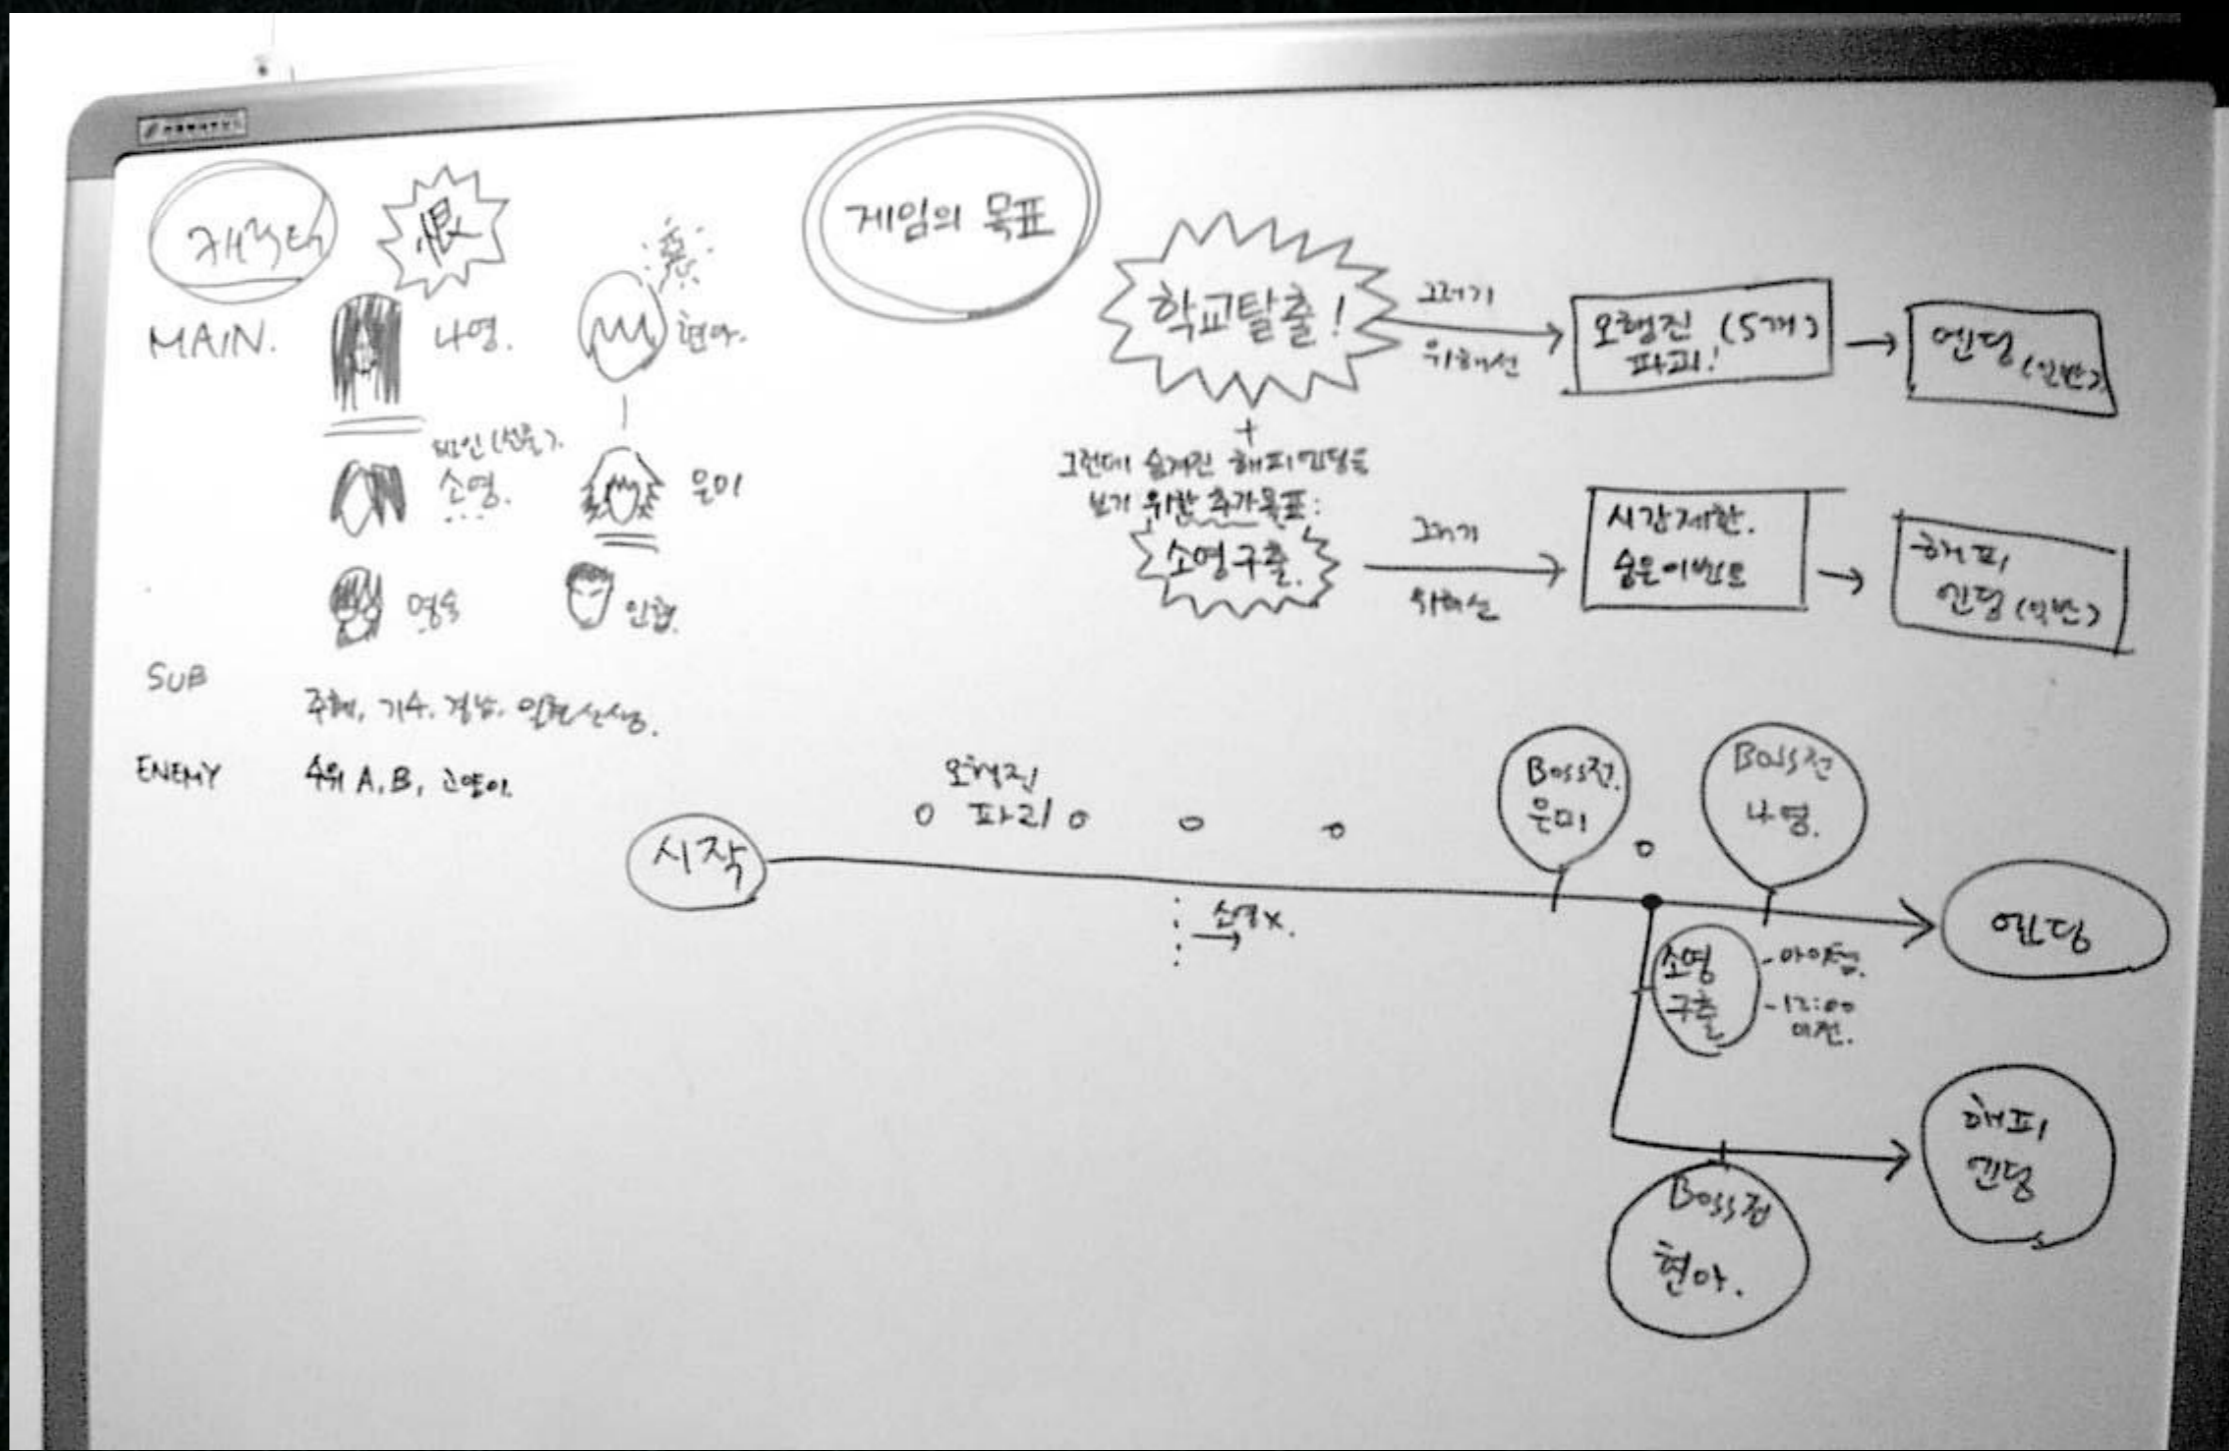 캐릭터
恨
惡
MAIN.
나영.
현아.
소영.
은미
명숙
인협.
SUB
ENEMY
수위 A, B, 고양이.
게임의 목표
학교탈출!
그러기
위해선
오행진 (5개)
파괴!
엔딩
(일반)
+
그런데 숨겨진 해피엔딩을
보기 위한 추가목표:
소영구출.
그러기
위해선
시간제한.
숨은이벤트
해피
엔딩 (일반)
시작
오행진
파괴
소영 x.
Boss전.
은미
Boss전
나영.
엔딩
소영
구출
-아이템.
-12:00
이전.
Boss전
현아.
해피
엔딩